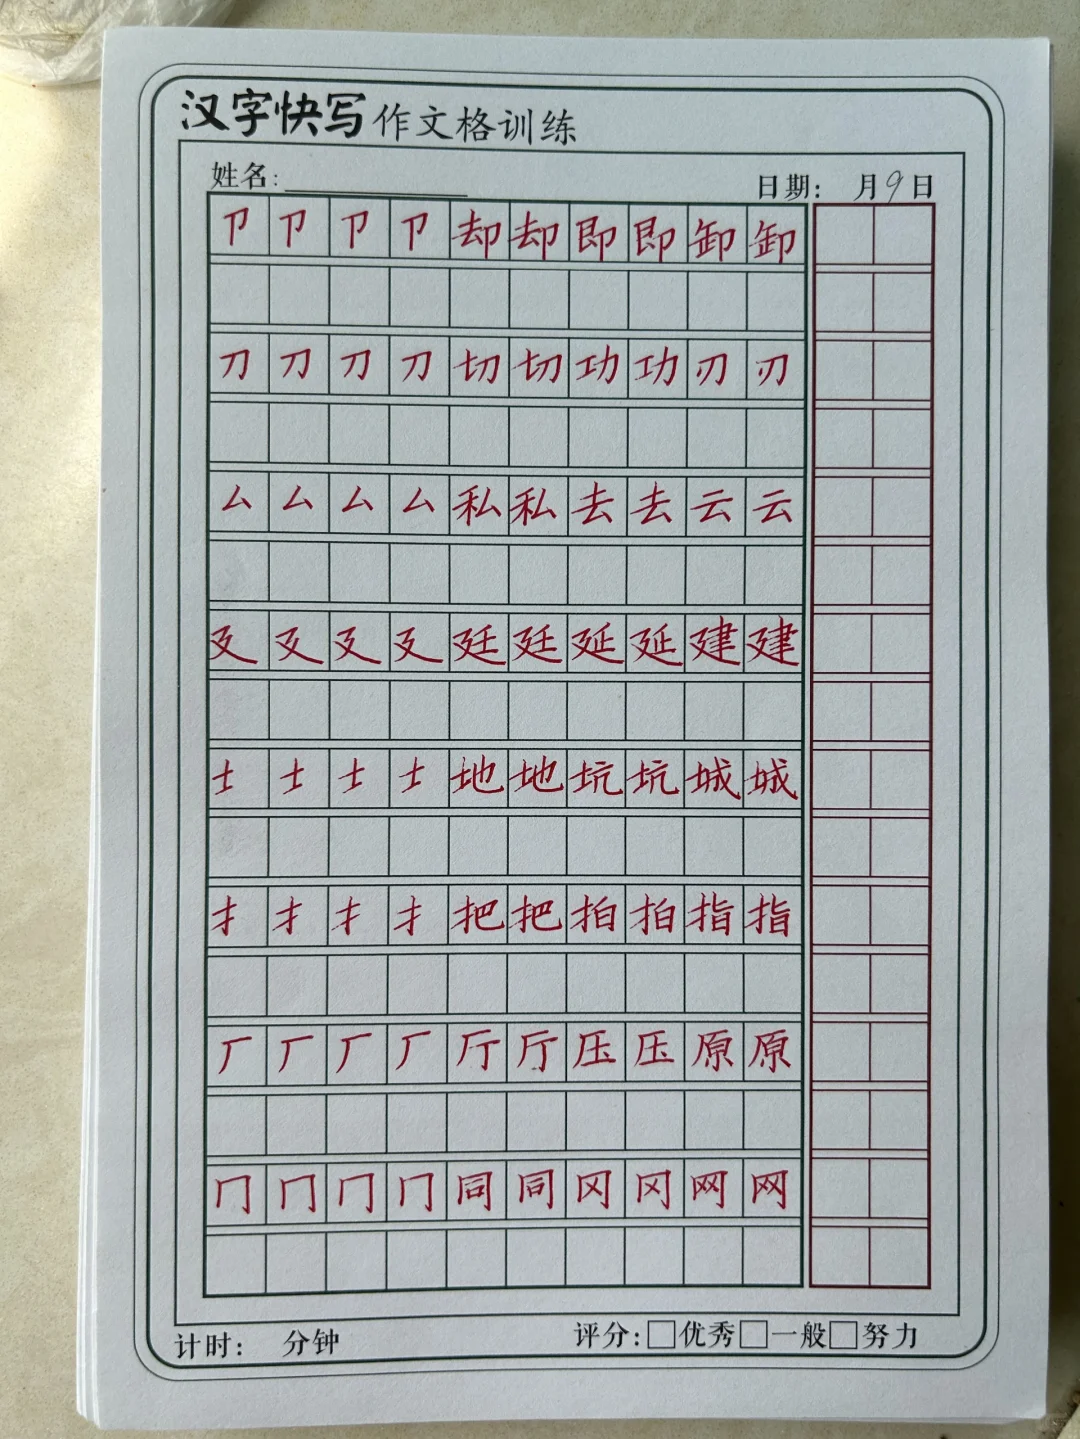 汉字快写作文格训练
姓名:
日期: 月9日
卩卩卩卩却却即即卸卸
刀刀刀刀切切功功刃刃
厶厶厶厶私私去去云云
廴廴廴廴廷廷延延建建
士士士士地地坑坑城城
扌扌扌扌把把拍拍指指
厂厂厂厂厅厅压压原原
冂冂冂冂同同冈冈网网
计时: 分钟
评分:□优秀□一般□努力